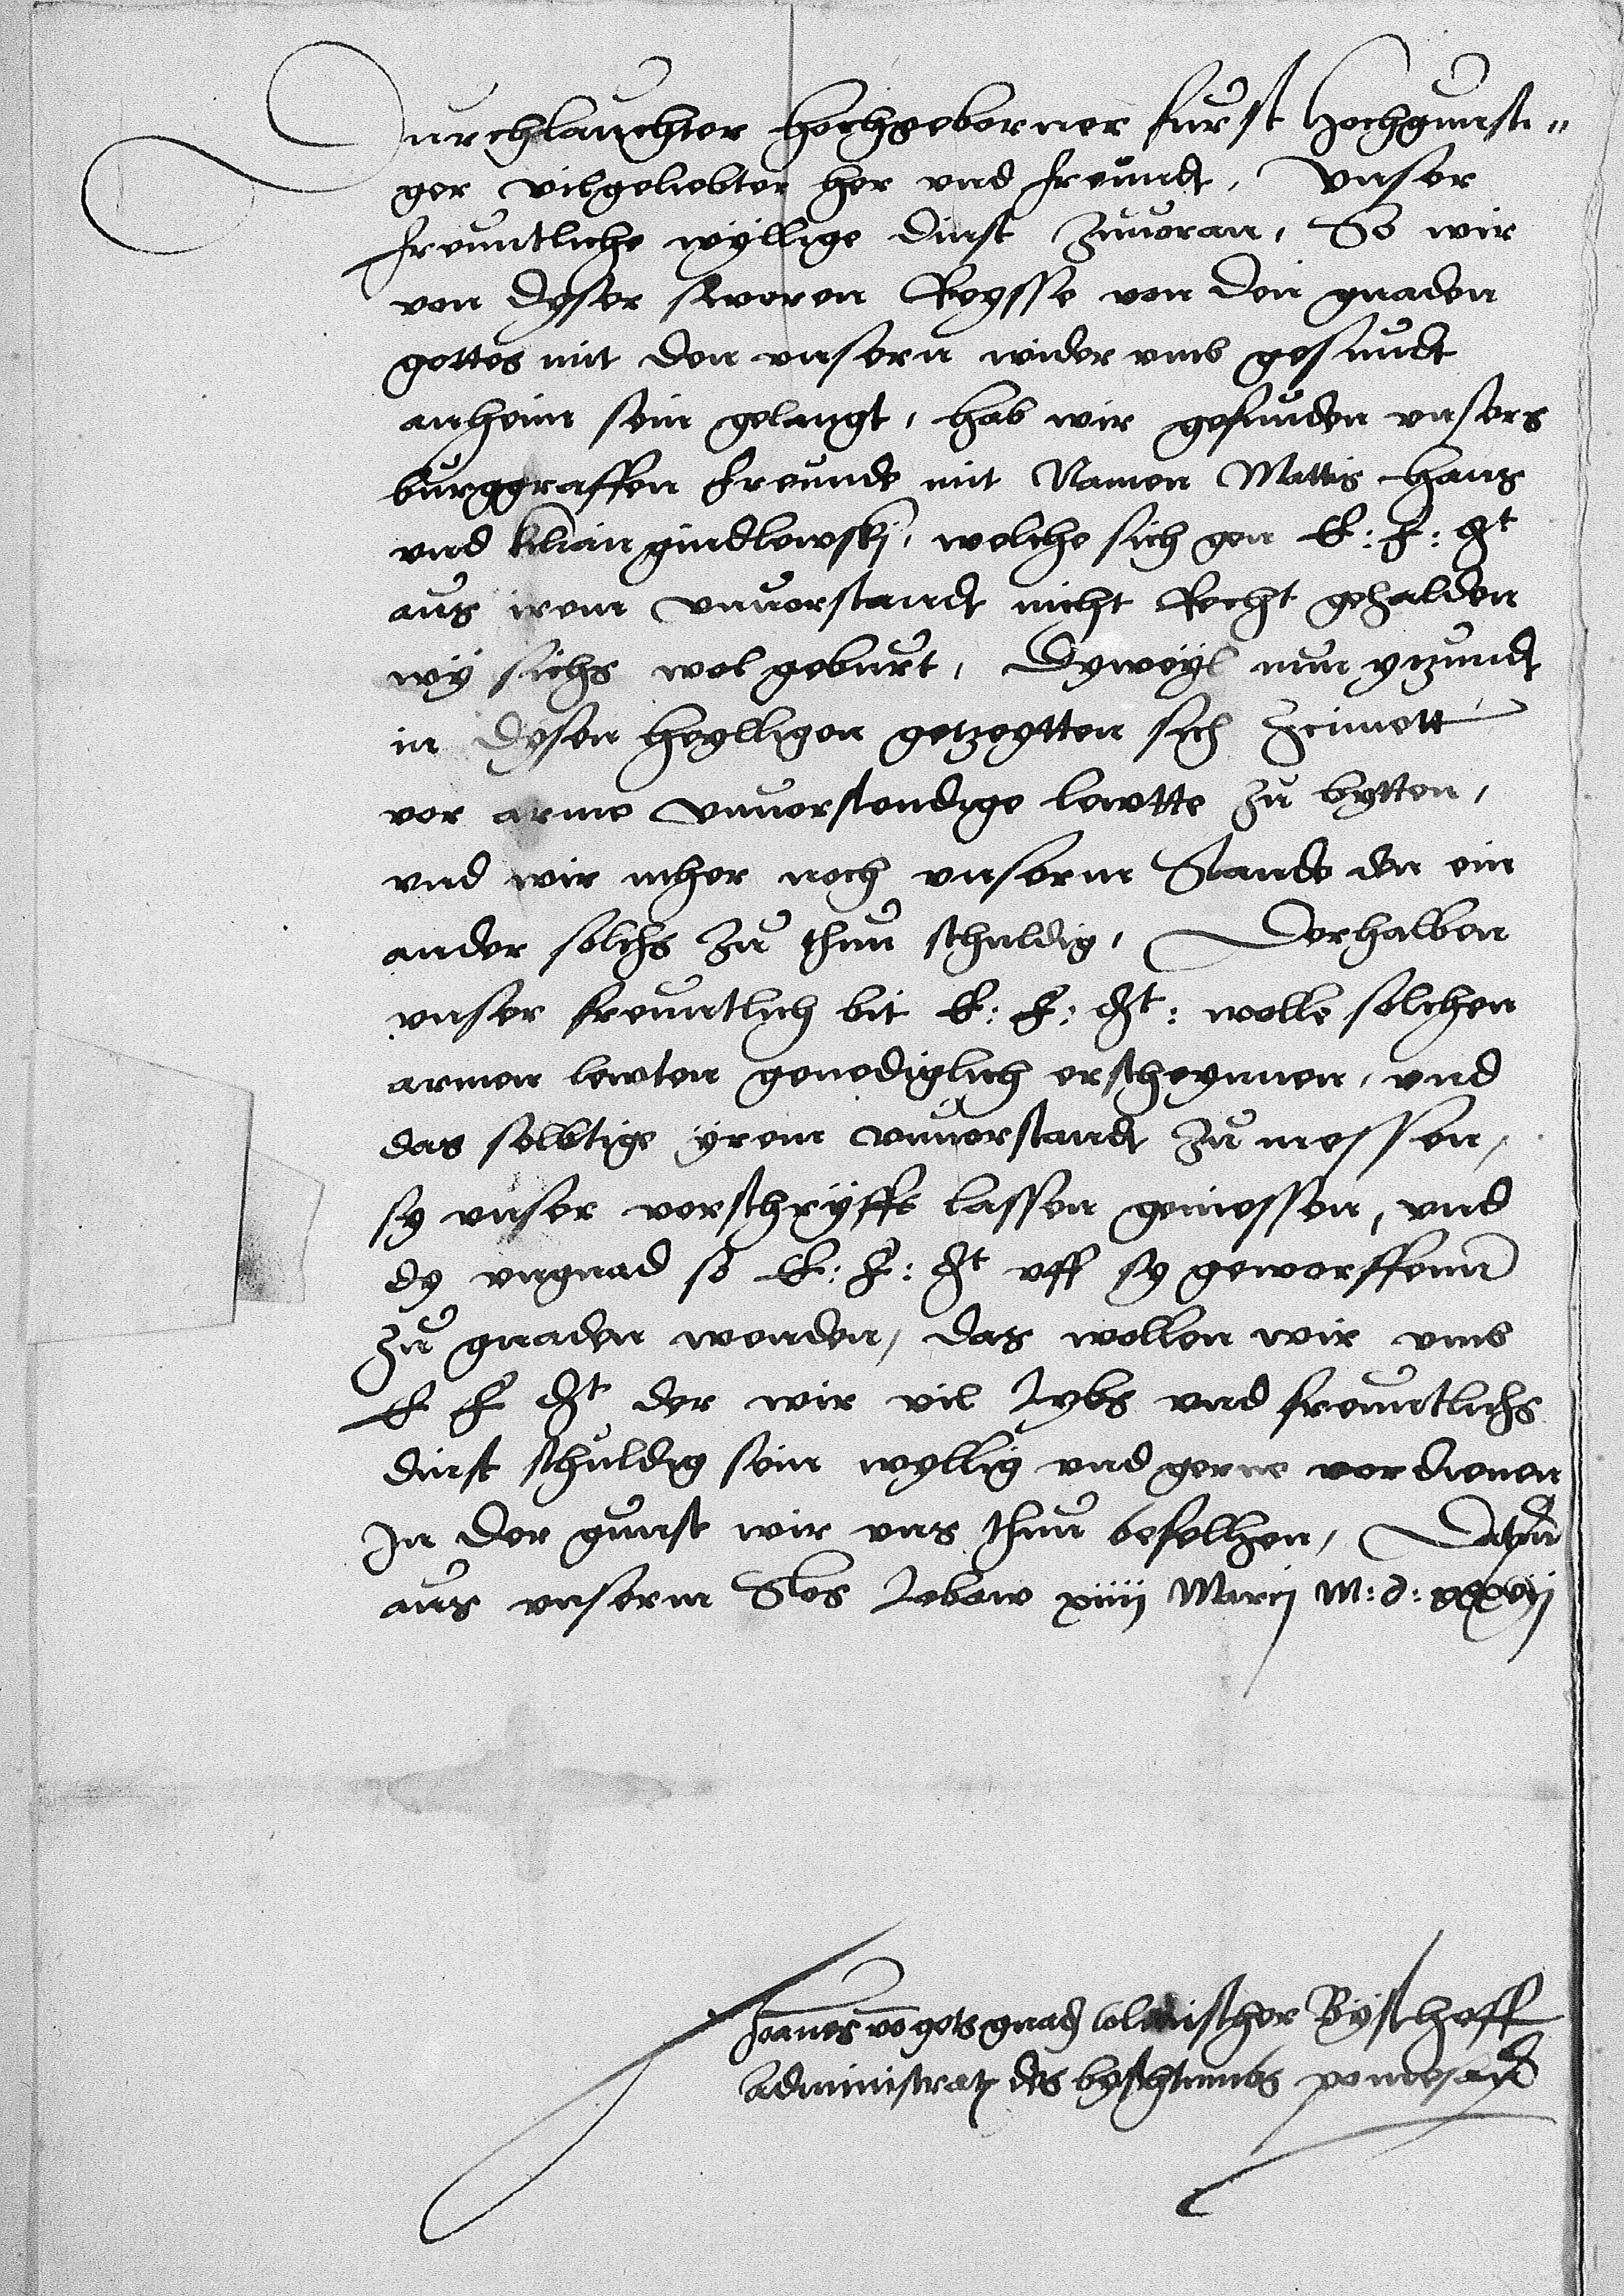 Durchlauchter hochgeborner furst hochgunsti„
ger vilgeliebter her vnd freundt, Vnser
freuntliche wÿllige dinst zuuoran, So wir
von dyser sworen Reysse von den gnaden
gottes mit den vnsern wider vmb gesundt
anheim sein gelangt, hab wir gefunden vnsers
burggraffen freunde mit Namen Mattis Hans
vnd kilian gindlowskj, welche sich gen E: F: Gt
aus irem vnuorstandt nicht Recht gehalden
wÿ sichs wol geburt, Dyweÿl nun ytzundt
in dysen heylligen getzeytten sich Zcimett
vor arme vnuorstendige lewtte zu bytten,
vnd wir meher noch vnserm Stande den ein
ander solchs zu thun schuldig, Derhalben
vnser freuntlich bit E: F: Gt: wolle solchen
armen lewten genediglich erscheynnen, vnd
das selbtige ÿrem vnuorstandt zu messen,
sy vnser vorschrÿfft lassen geniessen, vnd
dy vngnad so E: F: Gt vff sy geworffenn
zu gnaden wenden, das wollen wir vmb
E F Gt der wir vil lybs vnd freuntlichs
dinst schuldig sein wyllig vnd gerne vordienen
In der gunst wir vns thun befelhen, Datum
aus vnserm Slos Lebaw xiiij Marcij M: d: xxvij
Joannes vo gots gnad Colmischer Byschoff
Administrator des byschtumbs pomesan